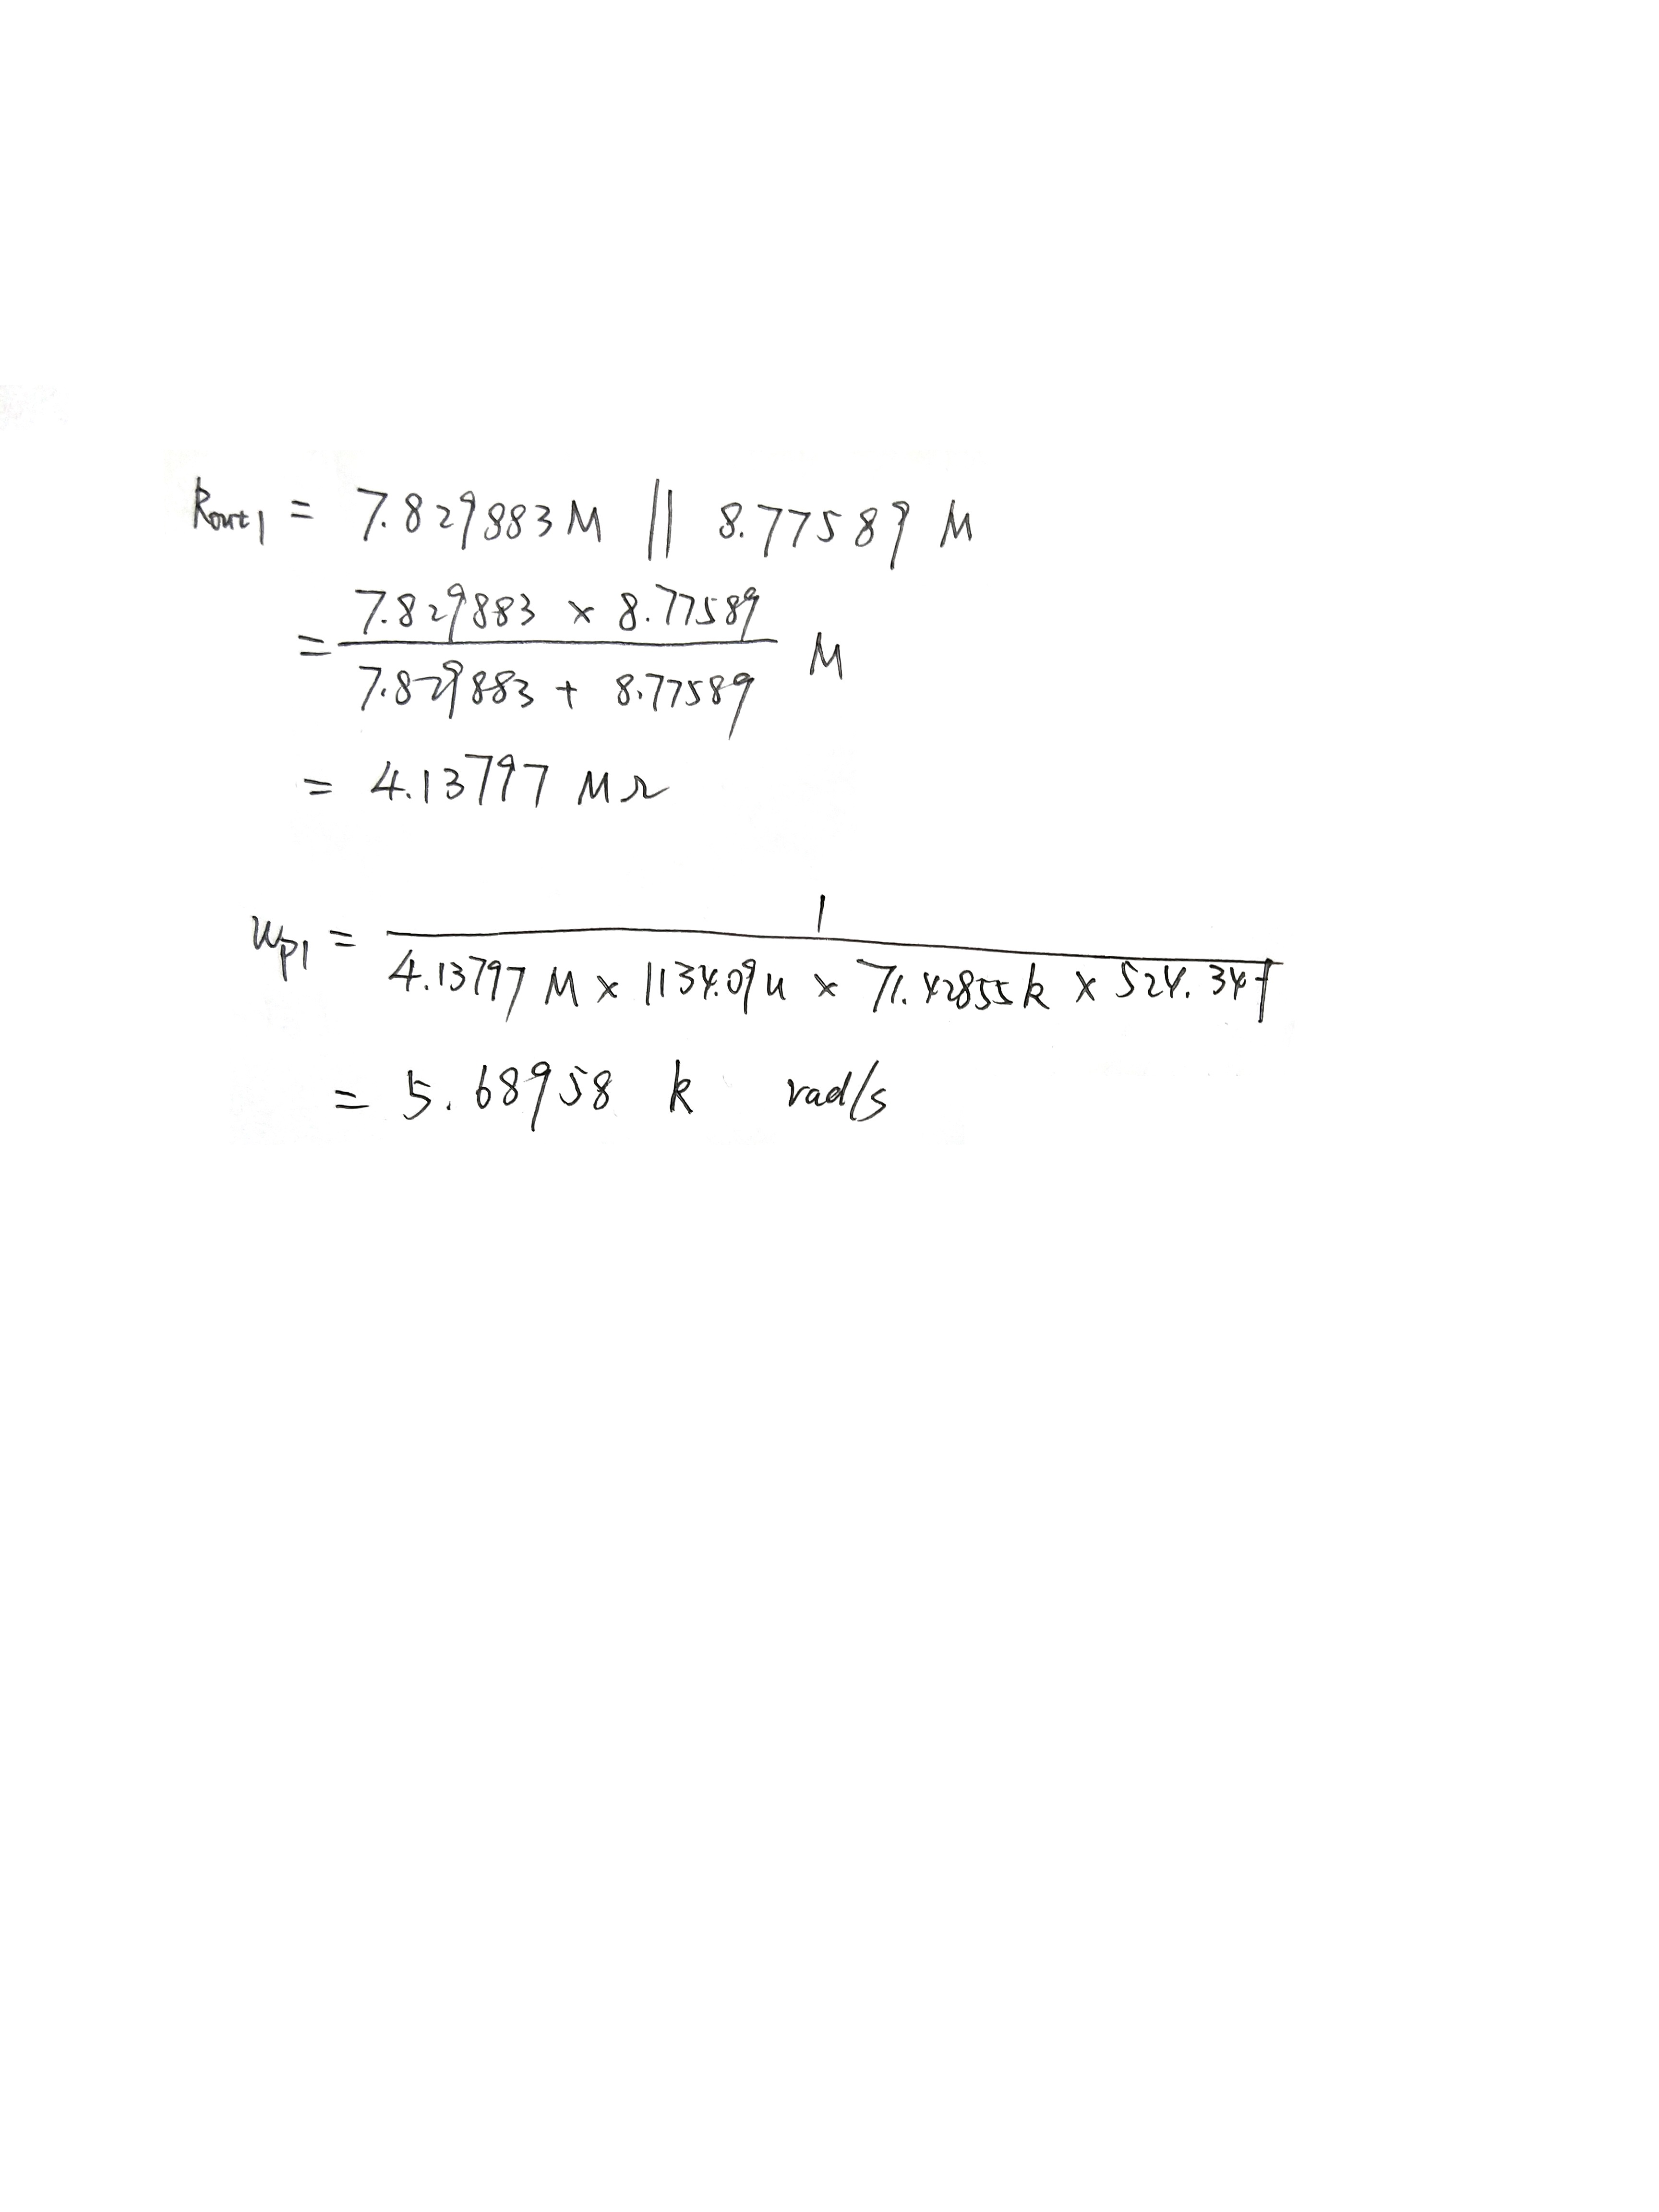 Rout1 = 7.829883 M || 8.77589 M
= 7.829883 × 8.77589 / 7.829883 + 8.77589 M
= 4.13797 MΩ
ωp1 = 1 / 4.13797 M × 1134.09 u × 71.42855 k × 524.34 f
= 5.68958 k rad/s